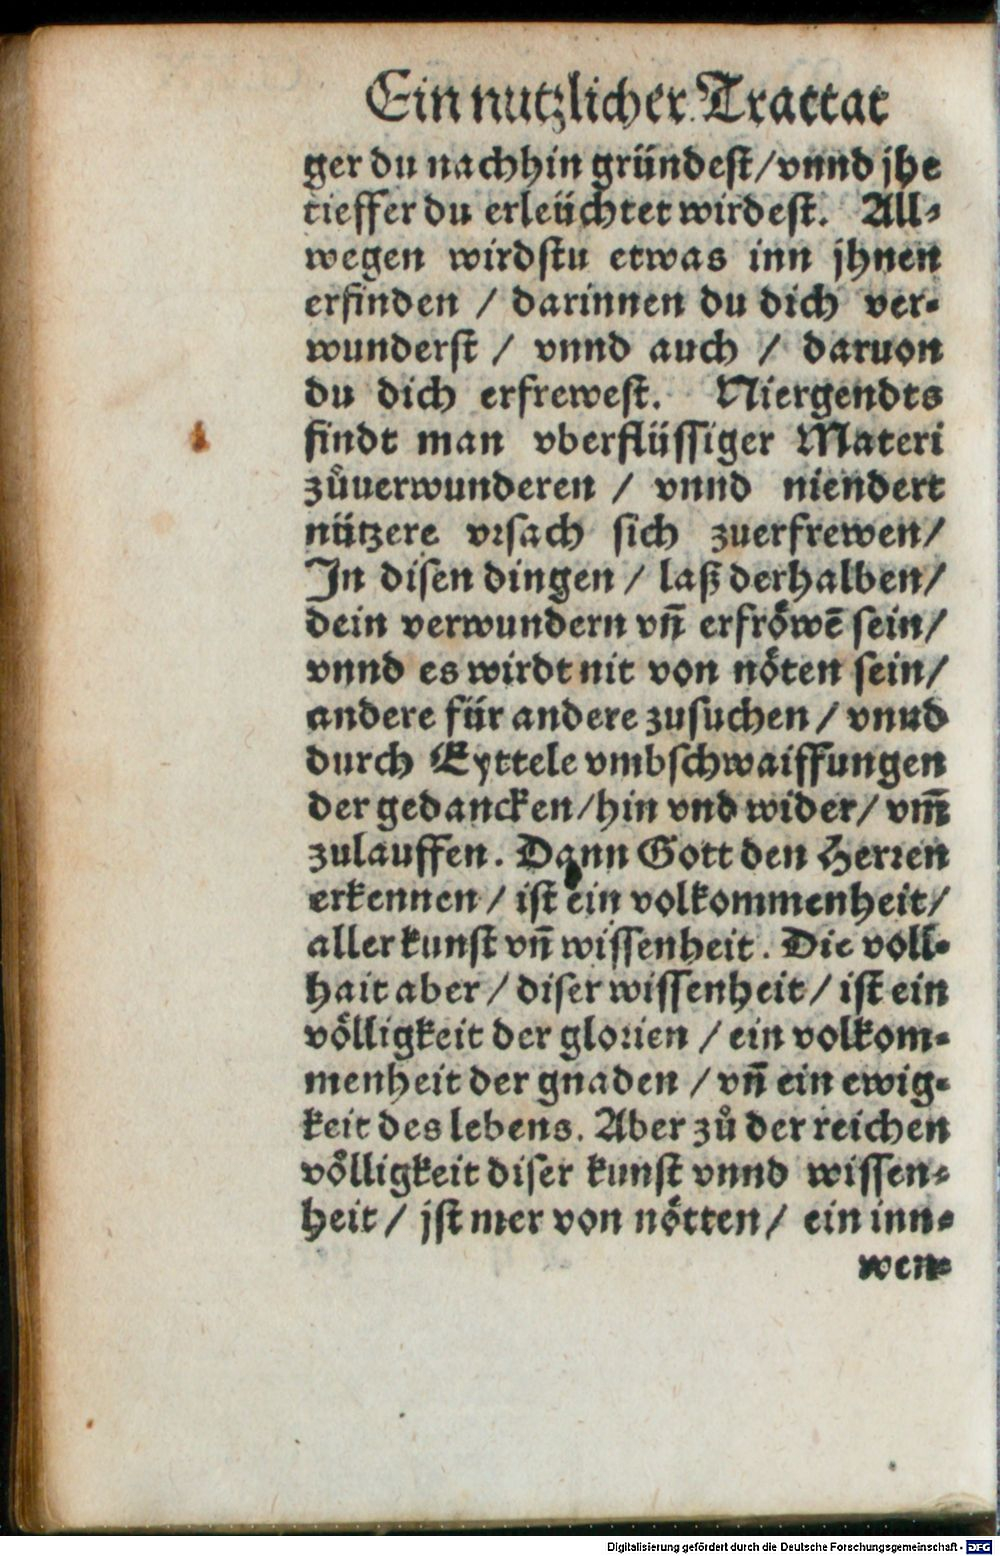 Ein nutzlicher Tractat
ger du nachhin gründest/vnnd jhe
tieffer du erleüchtet wirdest. All-
wegen wirdstu etwas inn jhnen
erfinden / darinnen du dich ver-
wunderst / vnnd auch / daruon
du dich erfrewest. Niergendts
findt man vberflüssiger Materi
zůuerwunderen / vnnd niendert
nützere vrsach sich zuerfrewen/
In disen dingen / laß derhalben/
dein verwundern vn̄ erfröwē sein/
vnnd es wirdt nit von nöten sein/
andere für andere zusuchen / vnud
durch Eyttele vmbschwaiffungen
der gedancken/hin vnd wider/ vm̄
zulauffen. Dann Gott den Herren
erkennen / ist ein volkommenheit/
aller kunst vn̄ wissenheit. Die voll-
hait aber / diser wissenheit / ist ein
völligkeit der glorien / ein volkom-
menheit der gnaden / vn̄ ein ewig-
keit des lebens. Aber zů der reichen
völligkeit diser kunst vnnd wissen-
heit / jst mer von nötten/ ein inn-
wen-
Digitalisierung gefördert durch die Deutsche Forschungsgemeinschaft - DFG